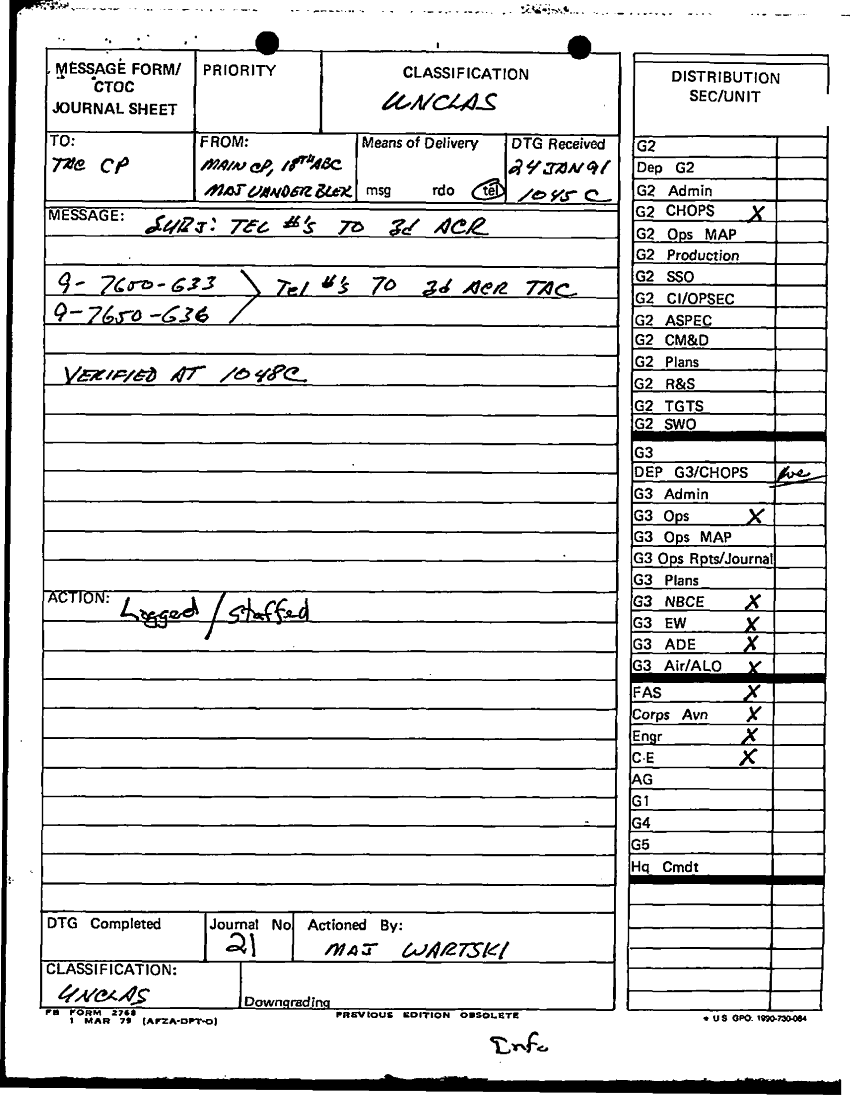 MESSAGE FORM/
CTOC
JOURNAL SHEET
PRIORITY
CLASSIFICATION
UNCLAS
TO:
TAC CP
FROM:
MAIN CP, 18TH ABC
MAJ VANDER BLEK
Means of Delivery
msg rdo tel
DTG Received
24 JAN 91
1045 C
MESSAGE:
SUBJ: TEL #'s TO 3d ACR
9-7600-633
9-7650-636
Tel #'s TO 3d ACR TAC
VERIFIED AT 1048C
ACTION:
Logged / Staffed
DTG Completed
Journal No
21
Actioned By:
MAJ WARTSKI
CLASSIFICATION:
UNCLAS
Downgrading
FB FORM 2768
1 MAR 79 (AFZA-DPT-O)
PREVIOUS EDITION OBSOLETE
Info
DISTRIBUTION
SEC/UNIT
G2
Dep G2
G2 Admin
G2 CHOPS X
G2 Ops MAP
G2 Production
G2 SSO
G2 CI/OPSEC
G2 ASPEC
G2 CM&D
G2 Plans
G2 R&S
G2 TGTS
G2 SWO
G3
DEP G3/CHOPS
G3 Admin
G3 Ops X
G3 Ops MAP
G3 Ops Rpts/Journal
G3 Plans
G3 NBCE X
G3 EW X
G3 ADE X
G3 Air/ALO X
FAS X
Corps Avn X
Engr X
C-E X
AG
G1
G4
G5
Hq Cmdt
★ U S GPO: 1990-730-084